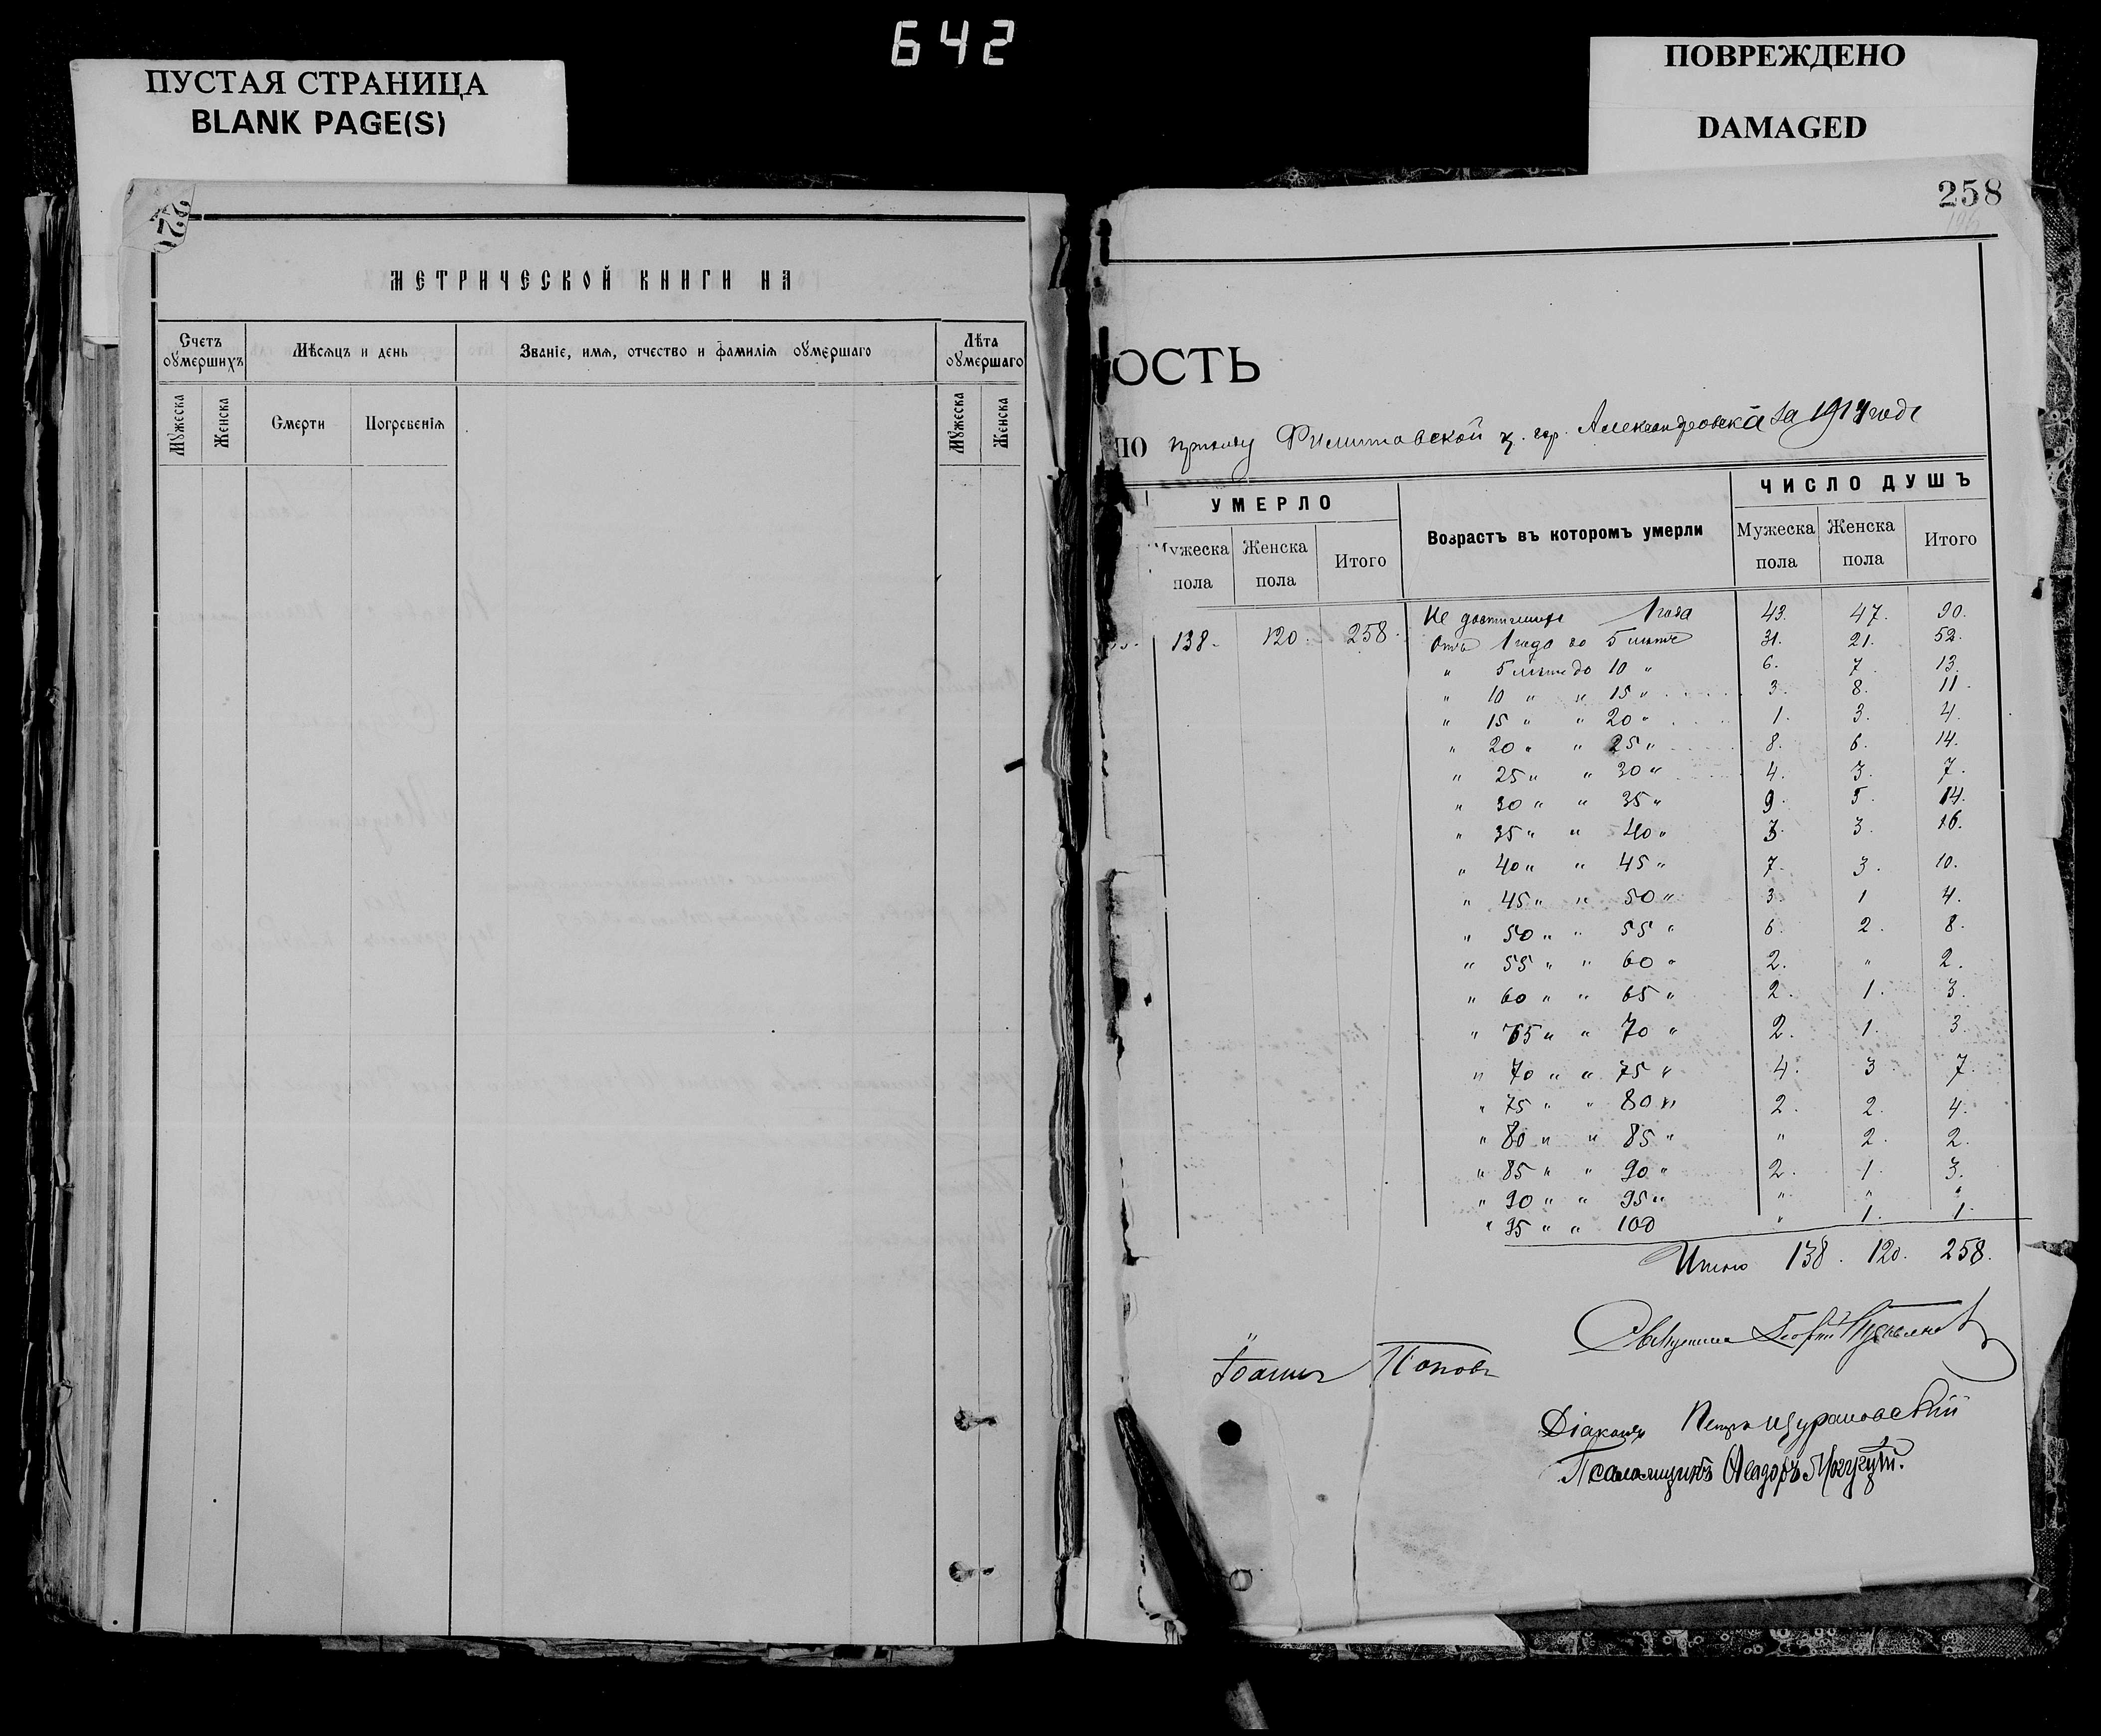 642
ПУСТАЯ СТРАНИЦА
BLANK PAGE(S)
ПОВРЕЖДЕНО
DAMAGED
МЕТРИЧЕСКОЙ КНИГИ НА
Счетъ оумершихъ
Мѣсяцъ и день
Званіе, имя, отчество и фамилія оумершаго
Лѣта оумершаго
Мужеска Женска Смерти Погребенія Мужеска Женска
258
ОСТЬ
ПО приходу ц. гор. Александровска за 1914 годъ
УМЕРЛО
Возрастъ въ которомъ умерли
ЧИСЛО ДУШЪ
Мужеска пола Женска пола Итого
Мужеска пола Женска пола Итого
138. 120. 258.
Не достигшихъ 1 года 43. 47. 90.
Отъ 1 года до 5 лѣтъ 31. 21. 52.
" 5 лѣтъ до 10 " 6. 7. 13.
" 10 " " 15 " 3. 8. 11.
" 15 " " 20 " 1. 3. 4.
" 20 " " 25 " 8. 6. 14.
" 25 " " 30 " 4. 3. 7.
" 30 " " 35 " 9. 5. 14.
" 35 " " 40 " 3. 3. 16.
" 40 " " 45 " 7. 3. 10.
" 45 " " 50 " 3. 1 4.
" 50 " " 55 " 6. 2. 8.
" 55 " " 60 " 2. " 2.
" 60 " " 65 " 2. 1. 3.
" 65 " " 70 " 2. 1. 3.
" 70 " " 75 " 4. 3 7.
" 75 " " 80 " 2. 2. 4.
" 80 " " 85 " " 2. 2.
" 85 " " 90 " 2. 1. 3.
" 90 " " 95 " " " "
" 95 " " 100 " 1. 1.
Итого 138. 120. 258.
Священникъ Георгій
Іоаннъ Поповъ
Діаконъ Петръ Щурановскій
Псаломщикъ Ѳеодоръ